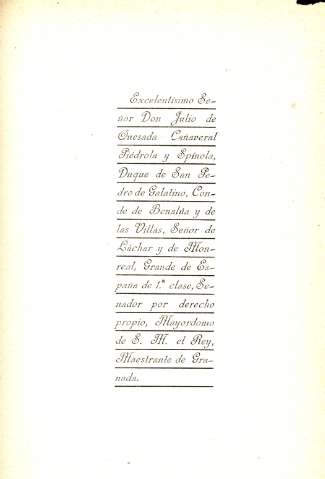 Excelentísimo Se-
ñor Don Julio de
Quesada Cañaveral
Piédrola y Spínola,
Duque de San Pe-
dro de Galatino, Con-
de de Benalúa y de
las Villas, Señor de
Láchar y de Mon-
real, Grande de Es-
paña de 1.ª clase, Se-
nador por derecho
propio, Mayordomo
de S. M. el Rey,
Maestrante de Gra-
nada.